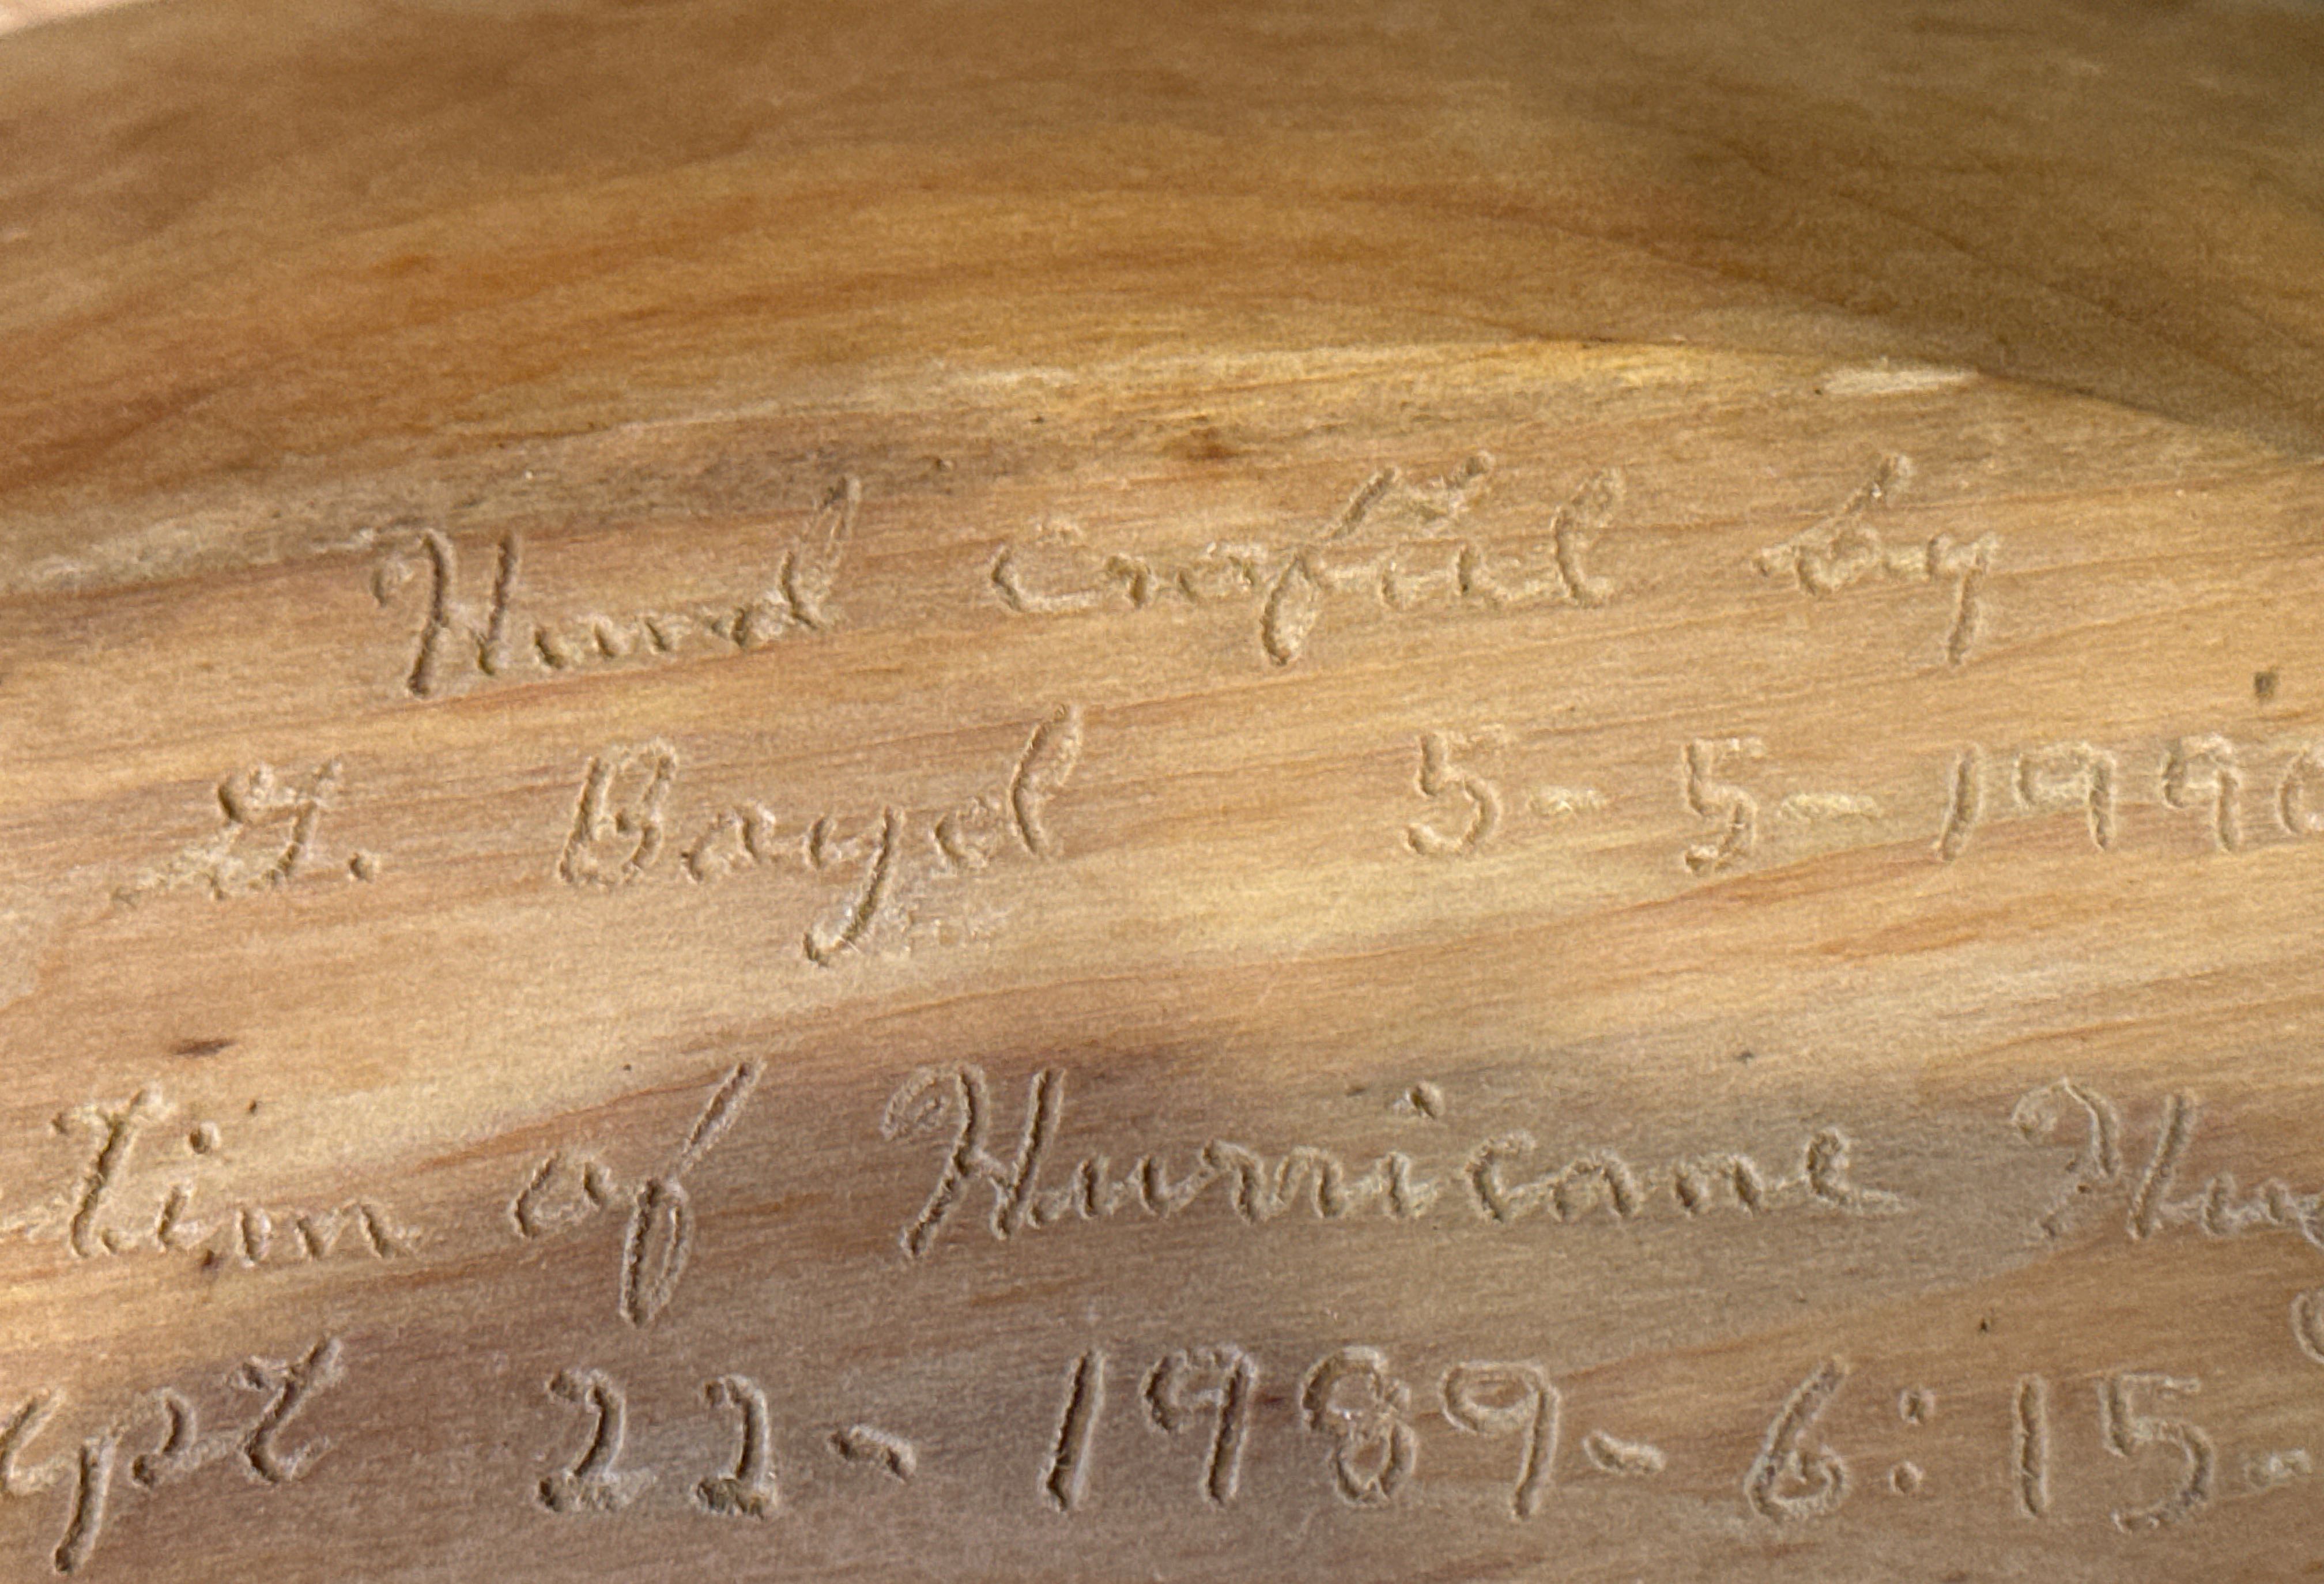 Hand crafted by
G. Boyd 5-5-1990
tim of Hurricane Hug
ept 22-1989-6:15-